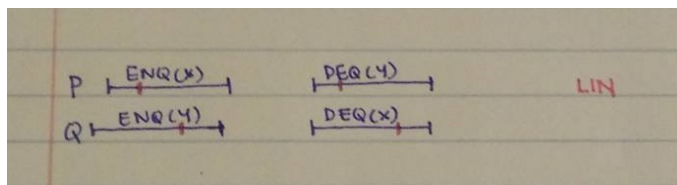 P ENQ(X) DEQ(Y) LIN
Q ENQ(Y) DEQ(X)